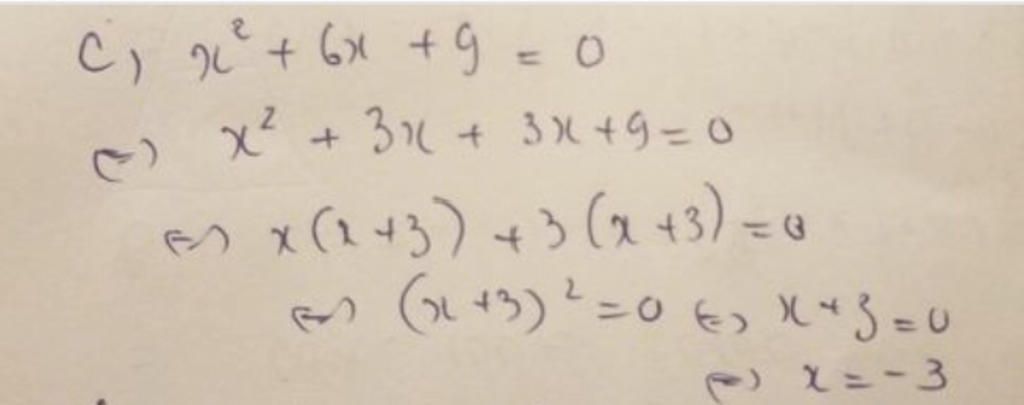 C, x² + 6x + 9 = 0
⇔ x² + 3x + 3x + 9 = 0
⇔ x(x+3) + 3(x+3) = 0
⇔ (x+3)² = 0 ⇔ x+3 = 0
⇔ x = -3